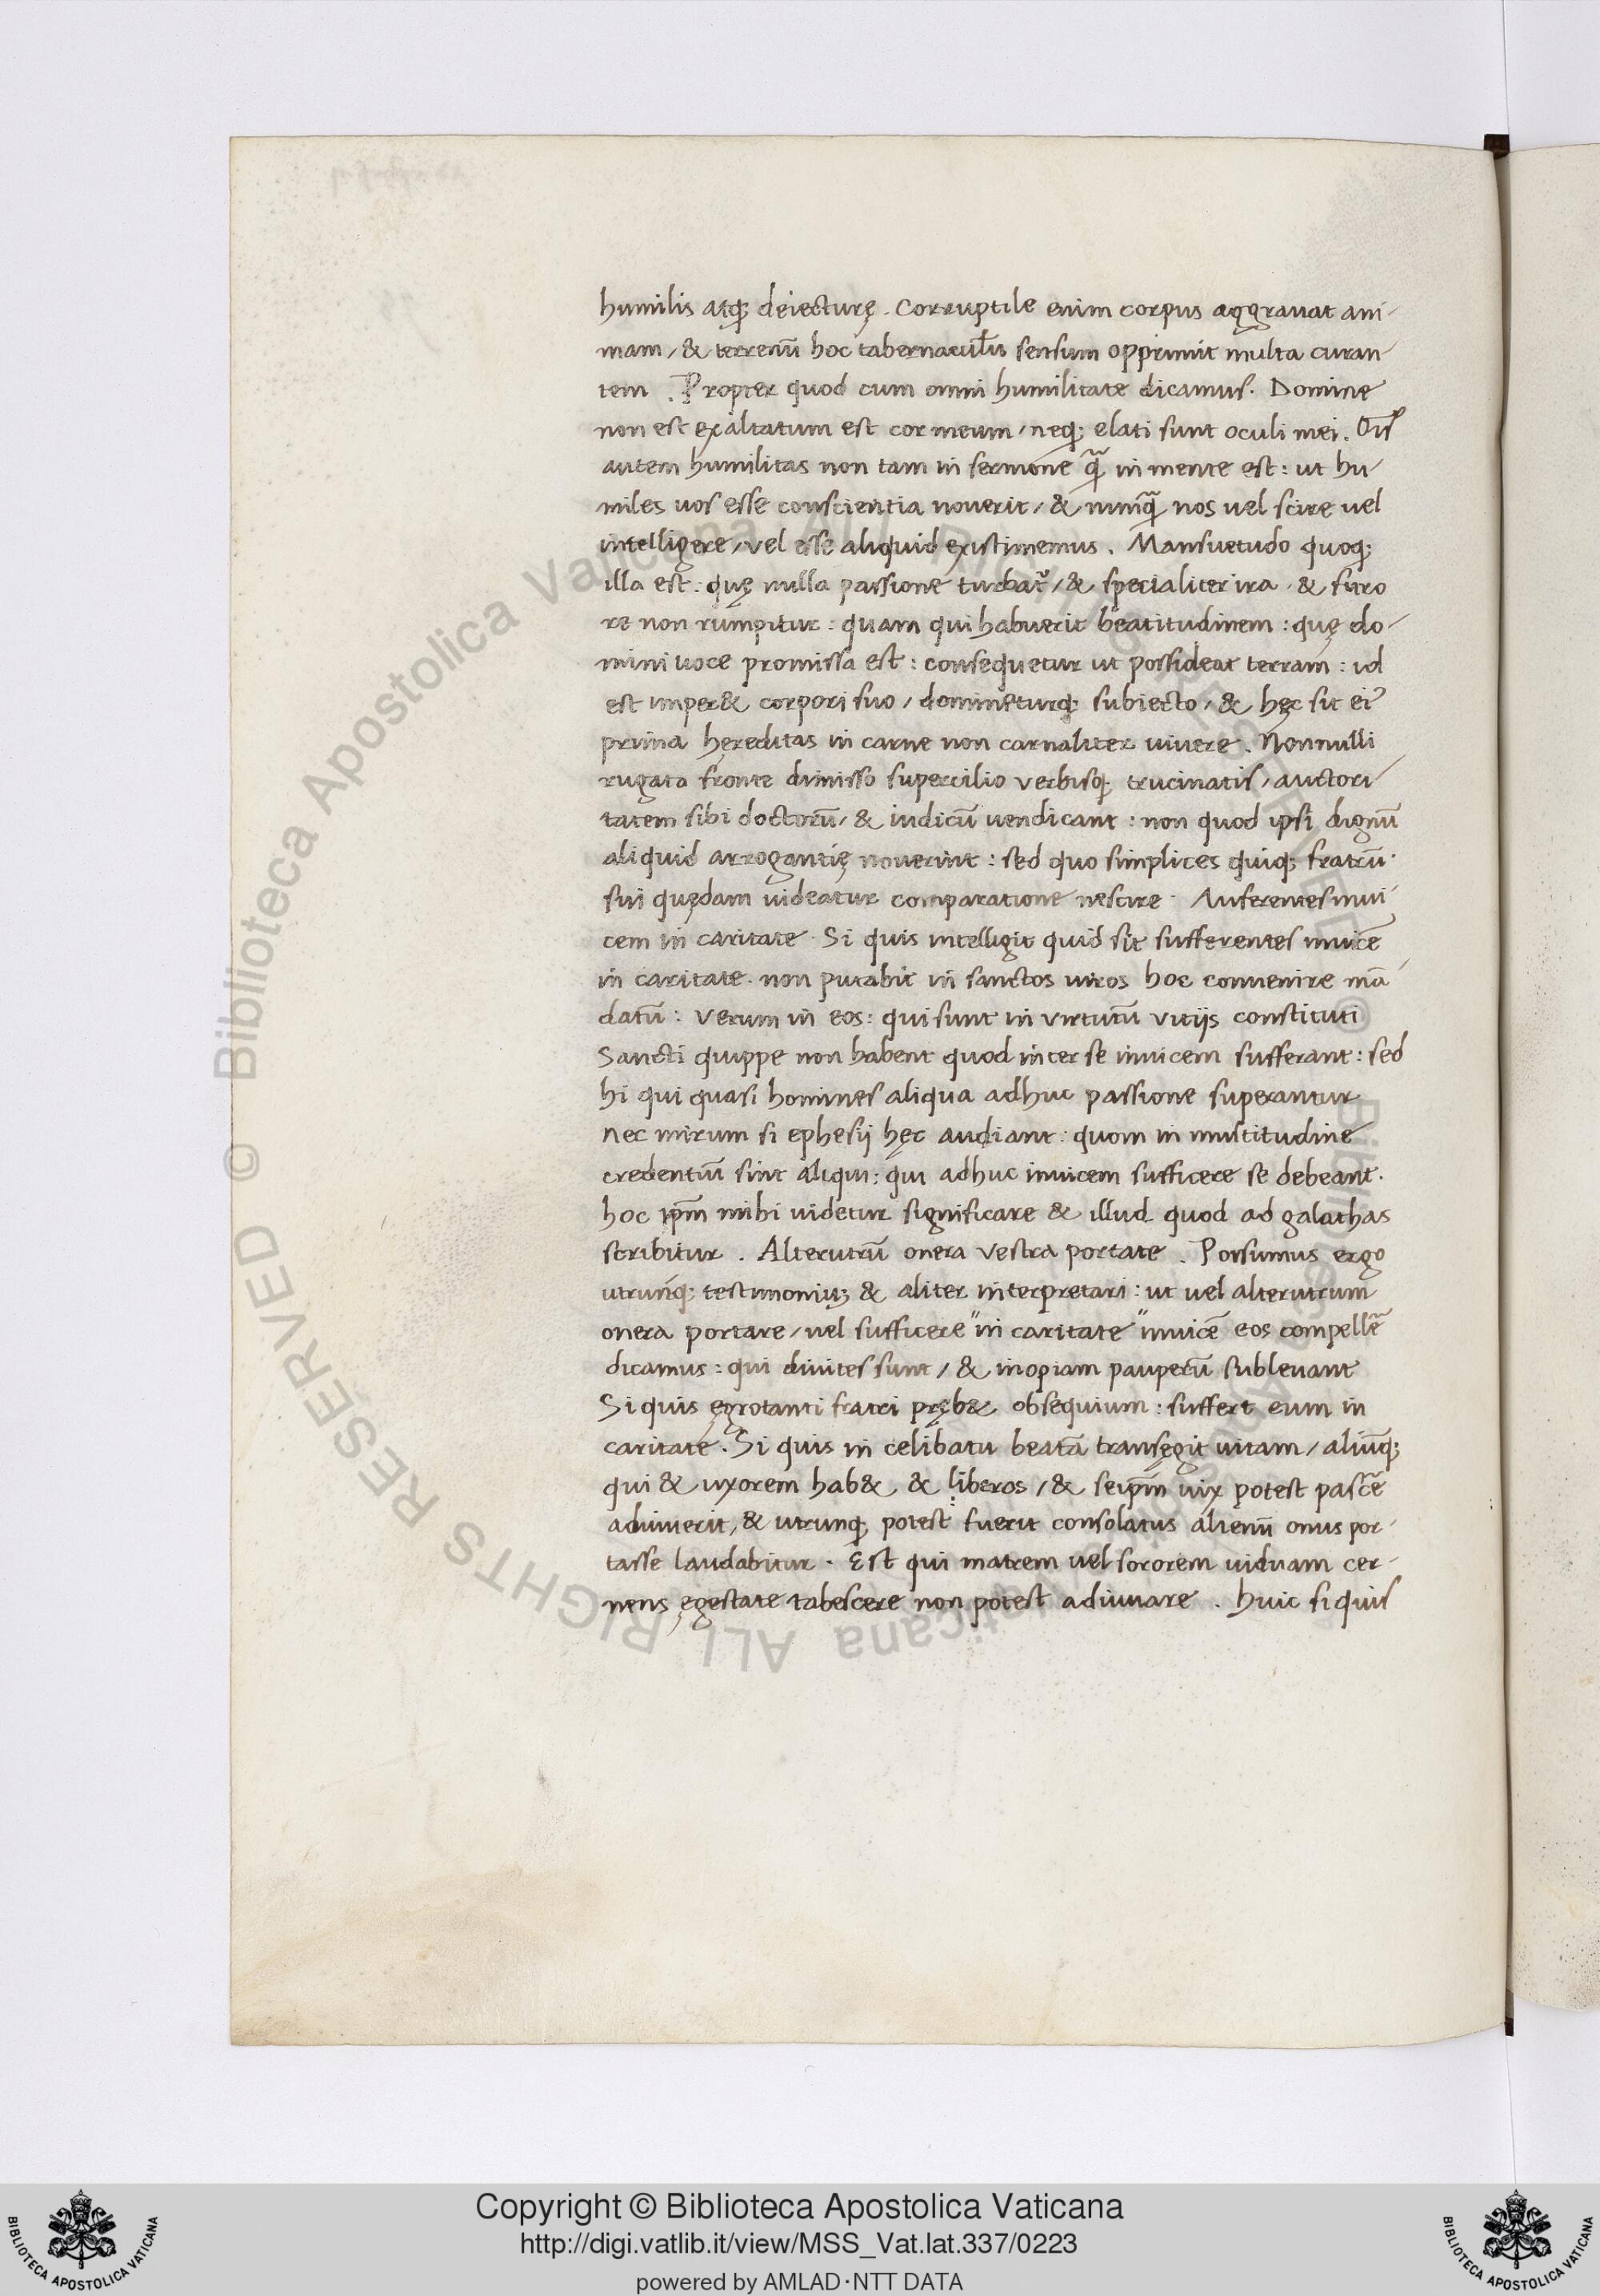 humilis atq; deiecturę. Corruptile enim corpus aggrauat ani-
mam, & terrenū hoc tabernaculū sensum opprimit multa curan-
tem. Propter quod cum omni humilitate dicamus. Domine
non est exaltatum est cor meum, neq; elati sunt oculi mei. Oīs
autem humilitas non tam in sermone q̄ in mente est: ut hu-
miles uos esse conscientia nouerit, & nunq̄ nos uel scire uel
intelligere, vel esse aliquid existimemus. Mansuetudo quoq;
illa est: quę nulla passione turbat᷑, & specialiter ira & furo
re non rumpitur: quam qui habuerit beatitudinem: quę do-
mini uoce promissa est: consequetur ut possideat terram: id
est imper& corpori suo, domineturq; subiecto, & hęc sit ei
prima hęreditas in carne non carnaliter uiuere. Nonnulli
rugata fronte dimisso supercilio verbisq; trucinatis, auctori-
tatem sibi doctorū, & iudicū uendicant: non quod ipsi dignū
aliquid arrogantię nouerint: sed quo simplices quiq; fratrū
sui quędam uideatur comparatione nescire. Auferentes inui-
cem in caritate. Si quis intelligit quid sit sufferentes inuicē
in caritate. non putabit in sanctos uiros hoc conuenire mā-
datū: Verum in eos: qui sunt in virtutū vitijs constituti
Sancti quippe non habent quod inter se inuicem sufferant: sed
hi qui quasi homines aliqua adhuc passione superantur
nec mirum si ephesij hęc audiant: quom in multitudine
credentiū sint aliqui: qui adhuc inuicem sufficere se debeant.
hoc ip̄m mihi uidetur significare & illud quod ad galathas
scribitur. Alterutrū onera vestra portate. Possumus ergo
utrunq; testimoniu; & aliter interpretari: ut uel alterutrum
onera portare, uel sufficere "in caritate" inuicē eos compellē
dicamus: qui diuites sunt, & inopiam pauperū subleuant
Si quis ęgrotanti fratri pręb& obsequium: suffert eum in
caritate. Si quis in celibatu beatā transęgit uitam, aliūq;
qui & uxorem hab& & liberos, & seip̄m uix potest pascē
adiuuerit, & utrunq; potest: fuerit consolatus alienū onus por-
tasse laudabitur. Est qui matrem uel sororem uiduam cer-
nens ęgestate tabescere non potest adiuuare. huic si quis
© Biblioteca Apostolica Vaticana ALL RIGHTS RESERVED
Copyright © Biblioteca Apostolica Vaticana
http://digi.vatlib.it/view/MSS_Vat.lat.337/0223
powered by AMLAD·NTT DATA
BIBLIOTECA APOSTOLICA VATICANA
BIBLIOTECA APOSTOLICA VATICANA